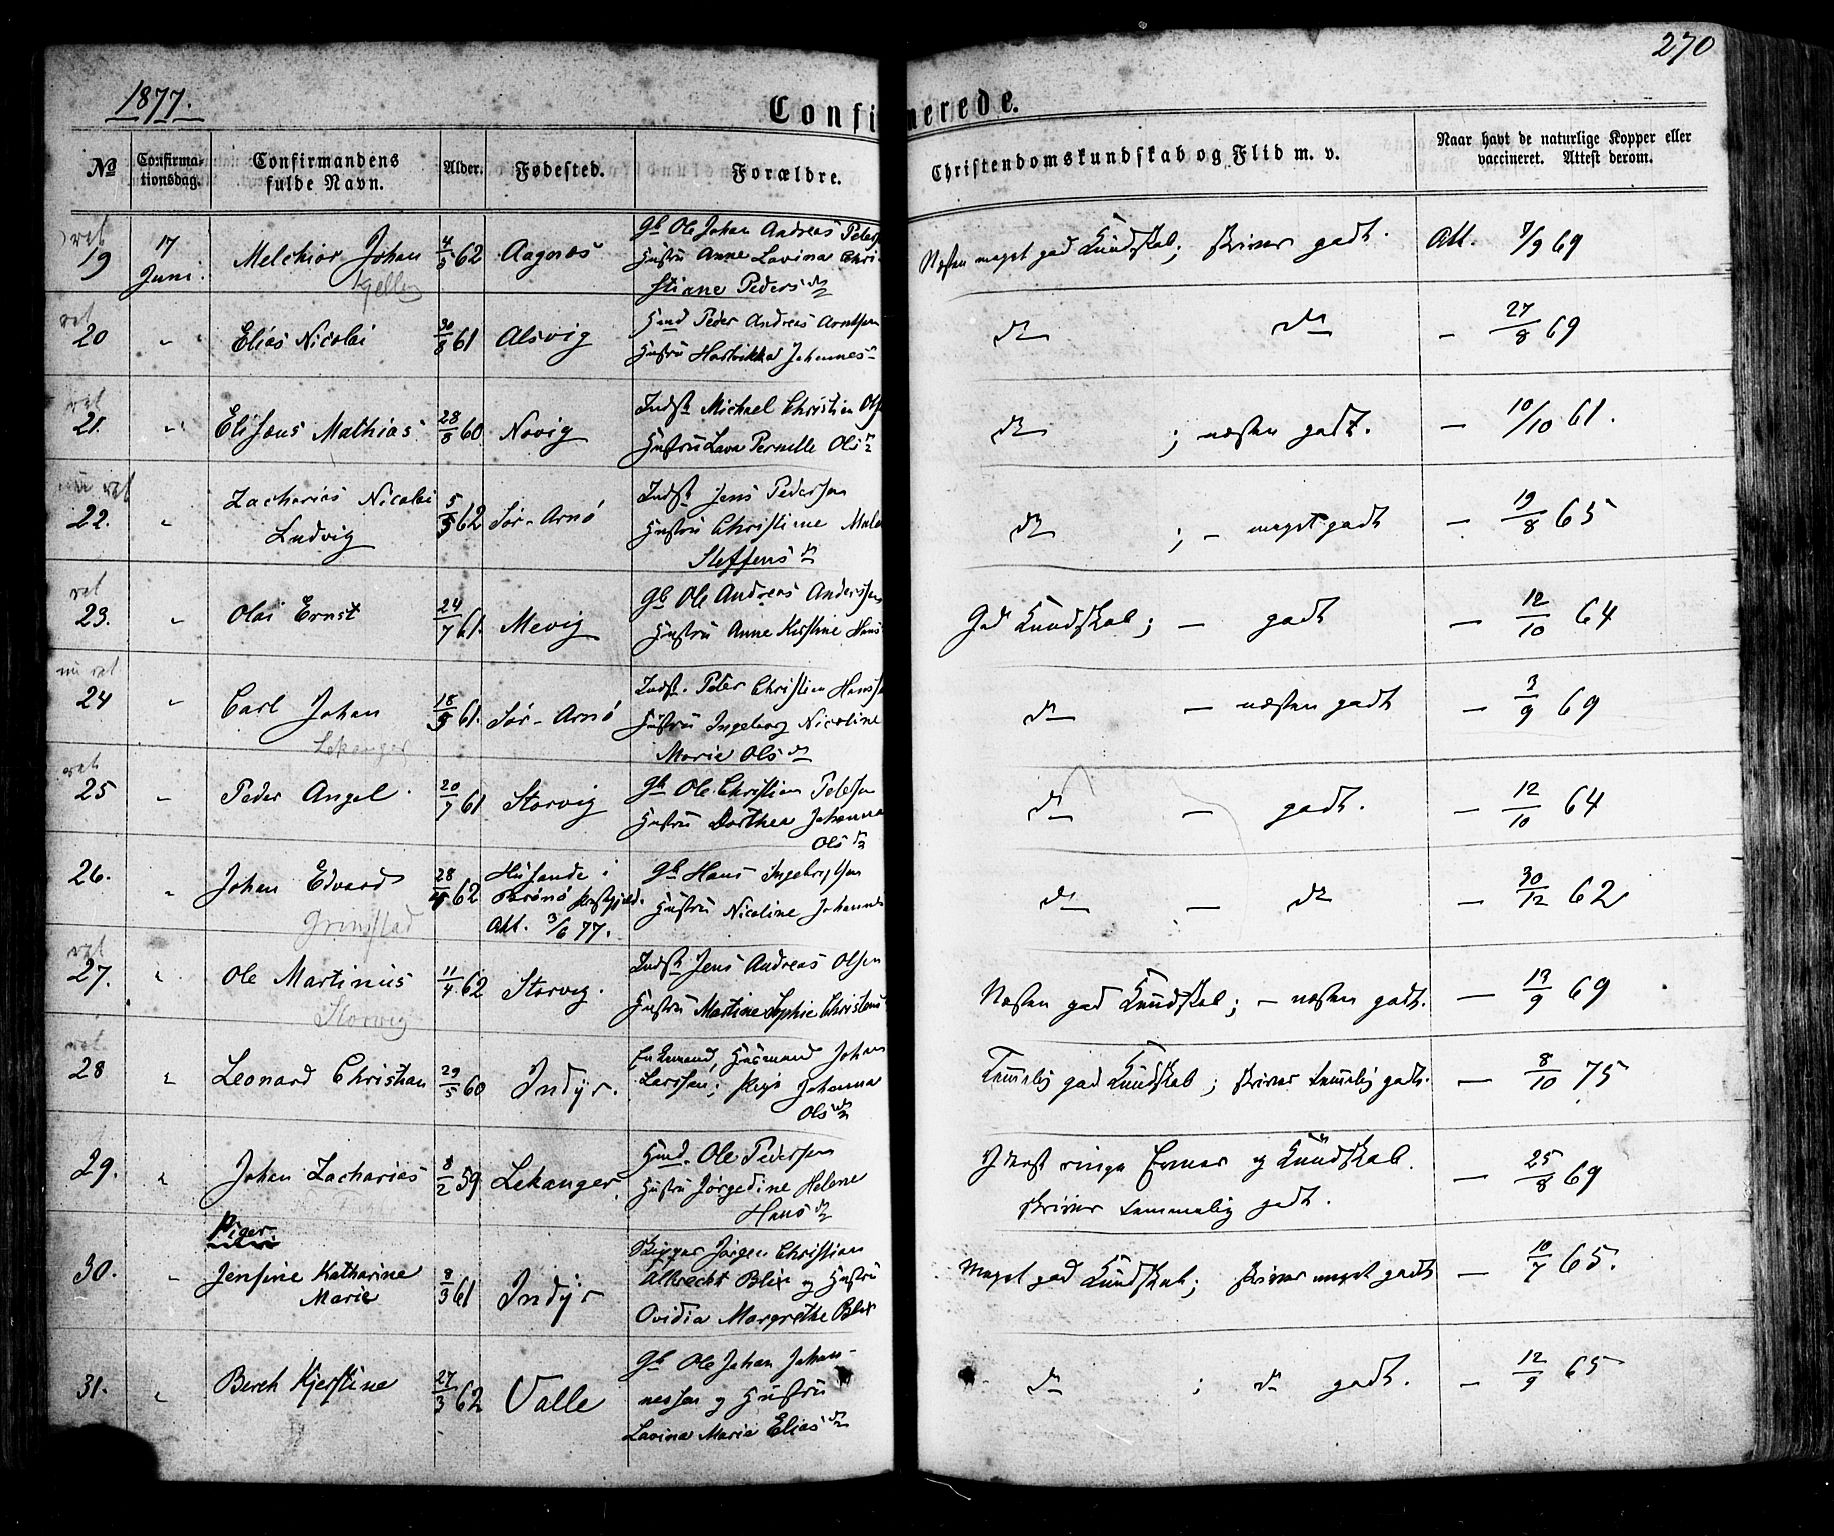 270
1877.
Confirmerede.
No
Confirma-
tionsdag.
Confirmandens
fulde Navn.
Alder.
Fødested.
Forældre.
Christendomskundskab og Flid m. v.
Naar havt de naturlige Kopper eller
vaccineret. Attest derom.
ret
19 17 Juni. Melchior Johan 4/3 62 Aagnæs
Gb Ole Johan Andreas Peters
Hustru Anne Lavina Chri-
stiane Pedersdn
Næsten meget god Kundskab; skriver godt. Att. 7/9 69
ret
20 " Elias Nicolai 30/8 61 Alsvig
Hmd Peder Andreas Arntsen
Hustru Hartvikka Johannes-
do do - 27/8 69
ret
21. " Elisæus Mathias 28/8 60 Novig
Indst Michael Christian Ols
Hustru Lava Pernille Olsdn
do ; næsten godt. - 10/10 61.
nu ret
22. " Zacharias Nicolai
Ludvig 5/5 62 Sør-Arnø
Indst Jens Pedersen
Hustru Christine Male
Steffensdn
do ; - meget godt - 19/8 65
ret
23. " Olai Ernst 24/7 61. Mevig
Gb Ole Andreas Anderssen
Hustru Anne Kirstine Hans
God Kundskab; - godt - 12/10 64
nu ret
24 " Carl Johan 18/5 61. Sør-Arnø
Lekanger
Indst. Peter Christian Hanss
Hustru Ingeborg Nicoline
Marie Olsdn
do - næsten godt - 3/9 69
ret
25 " Peder Angel 20/7 61 Storvig
Gb Ole Christian Petersen
Hustru Dorthea Johanna
Olsdn
do - godt. - 12/10 64
26. " Johan Edvard 28/4 62
Grimstad
Husande i
Brønø Præstgjeld.
Att. 3/6 77.
Gb Hans Ingebrigtsen
Hustru Nicoline Johannes
do - do - 30/12 62
ret
27. " Ole Martinus 11/4 62 Storvig.
Storvig
Indst Jens Andreas Olsen
Hustru Martine Sophie Christens
Næsten god Kundskab; - næsten godt. - 13/9 69
ret.
28 " Leonard Christian 29/5 60 Indyr.
Enkemand, Husmand Johan
Larssen; Pige Johanna
Olsdn
Temmelig god Kundskab; skriver temmelig godt. - 8/10 75
29. " Johan Zacharias 8/2 59 Lekanger.
Hmd. Ole Pedersen
Hustru Jørgedine Helene
Hansdn
Yderst ringe Evner og Kundskab.
skriver temmelig godt. - 25/8 69
Piger.
30. " Jensine Katharine
Marie 8/3 61 Indyr
Skipper Jørgen Christian
Albrecht Blix og Hustru
Ovidia Margrethe Blix
Meget god Kundskab; skriver meget godt - 10/7 65.
31. " Bereh Kjerstine 27/3 62 Valle
Gb Ole Johan Johan-
nessen og Hustru
Lavina Marie Eliasdn
do ; do godt. - 12/9 65